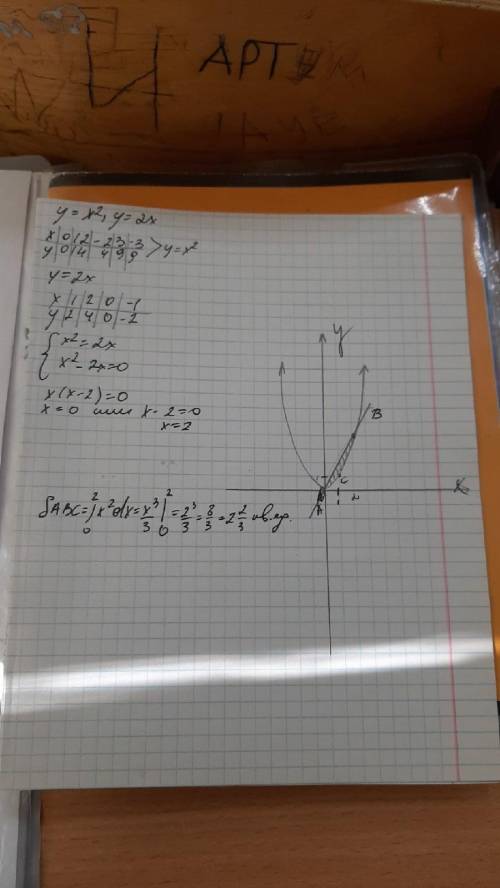 АРТ
y = x², y = 2x
x | 0 | 1 | 2 | -2 | 3 | -3
y | 0 | 1 | 4 | 4 | 9 | 9 > y = x²
y = 2x
x | 1 | 2 | 0 | -1
y | 2 | 4 | 0 | -2
{ x² = 2x
x² - 2x = 0
x(x-2) = 0
x = 0 или x - 2 = 0
x = 2
SABC = ∫₀² x² dx = x³/3 |₀² = 2³/3 = 8/3 = 2 2/3 кв.ед.
y
B
C
x
A